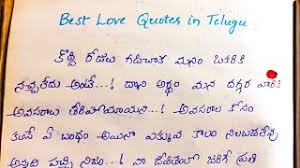 Best Love Quotes in Telugu
కొద్ది రోజులు గడిచాక మనం ఒకరికి
నచ్చలేదు అంటే...! దాని అర్థం మన దగ్గర వారికి
అవసరాలు తీరిపోయాయని...! అవసరాల కోసం
కలిసే ఏ బంధం అయినా ఎక్కువ కాలం నిలబడలేవు
అన్నది పచ్చి నిజం...! నా జీవితంలో జరిగే ప్రతి